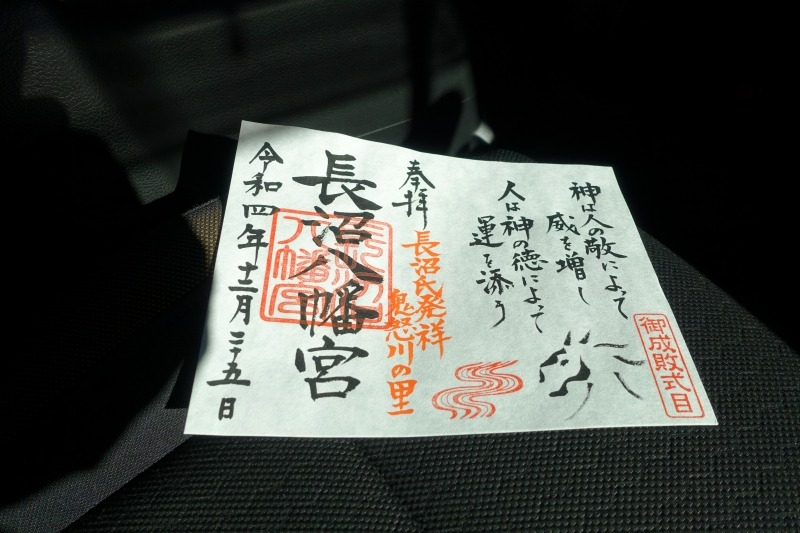 御成敗式目
神は人の敬によって
威を増し
人は神の徳によって
運を添う
奉拝
長沼氏発祥
鬼怒川の里
長沼八幡宮
令和四年十二月二十五日